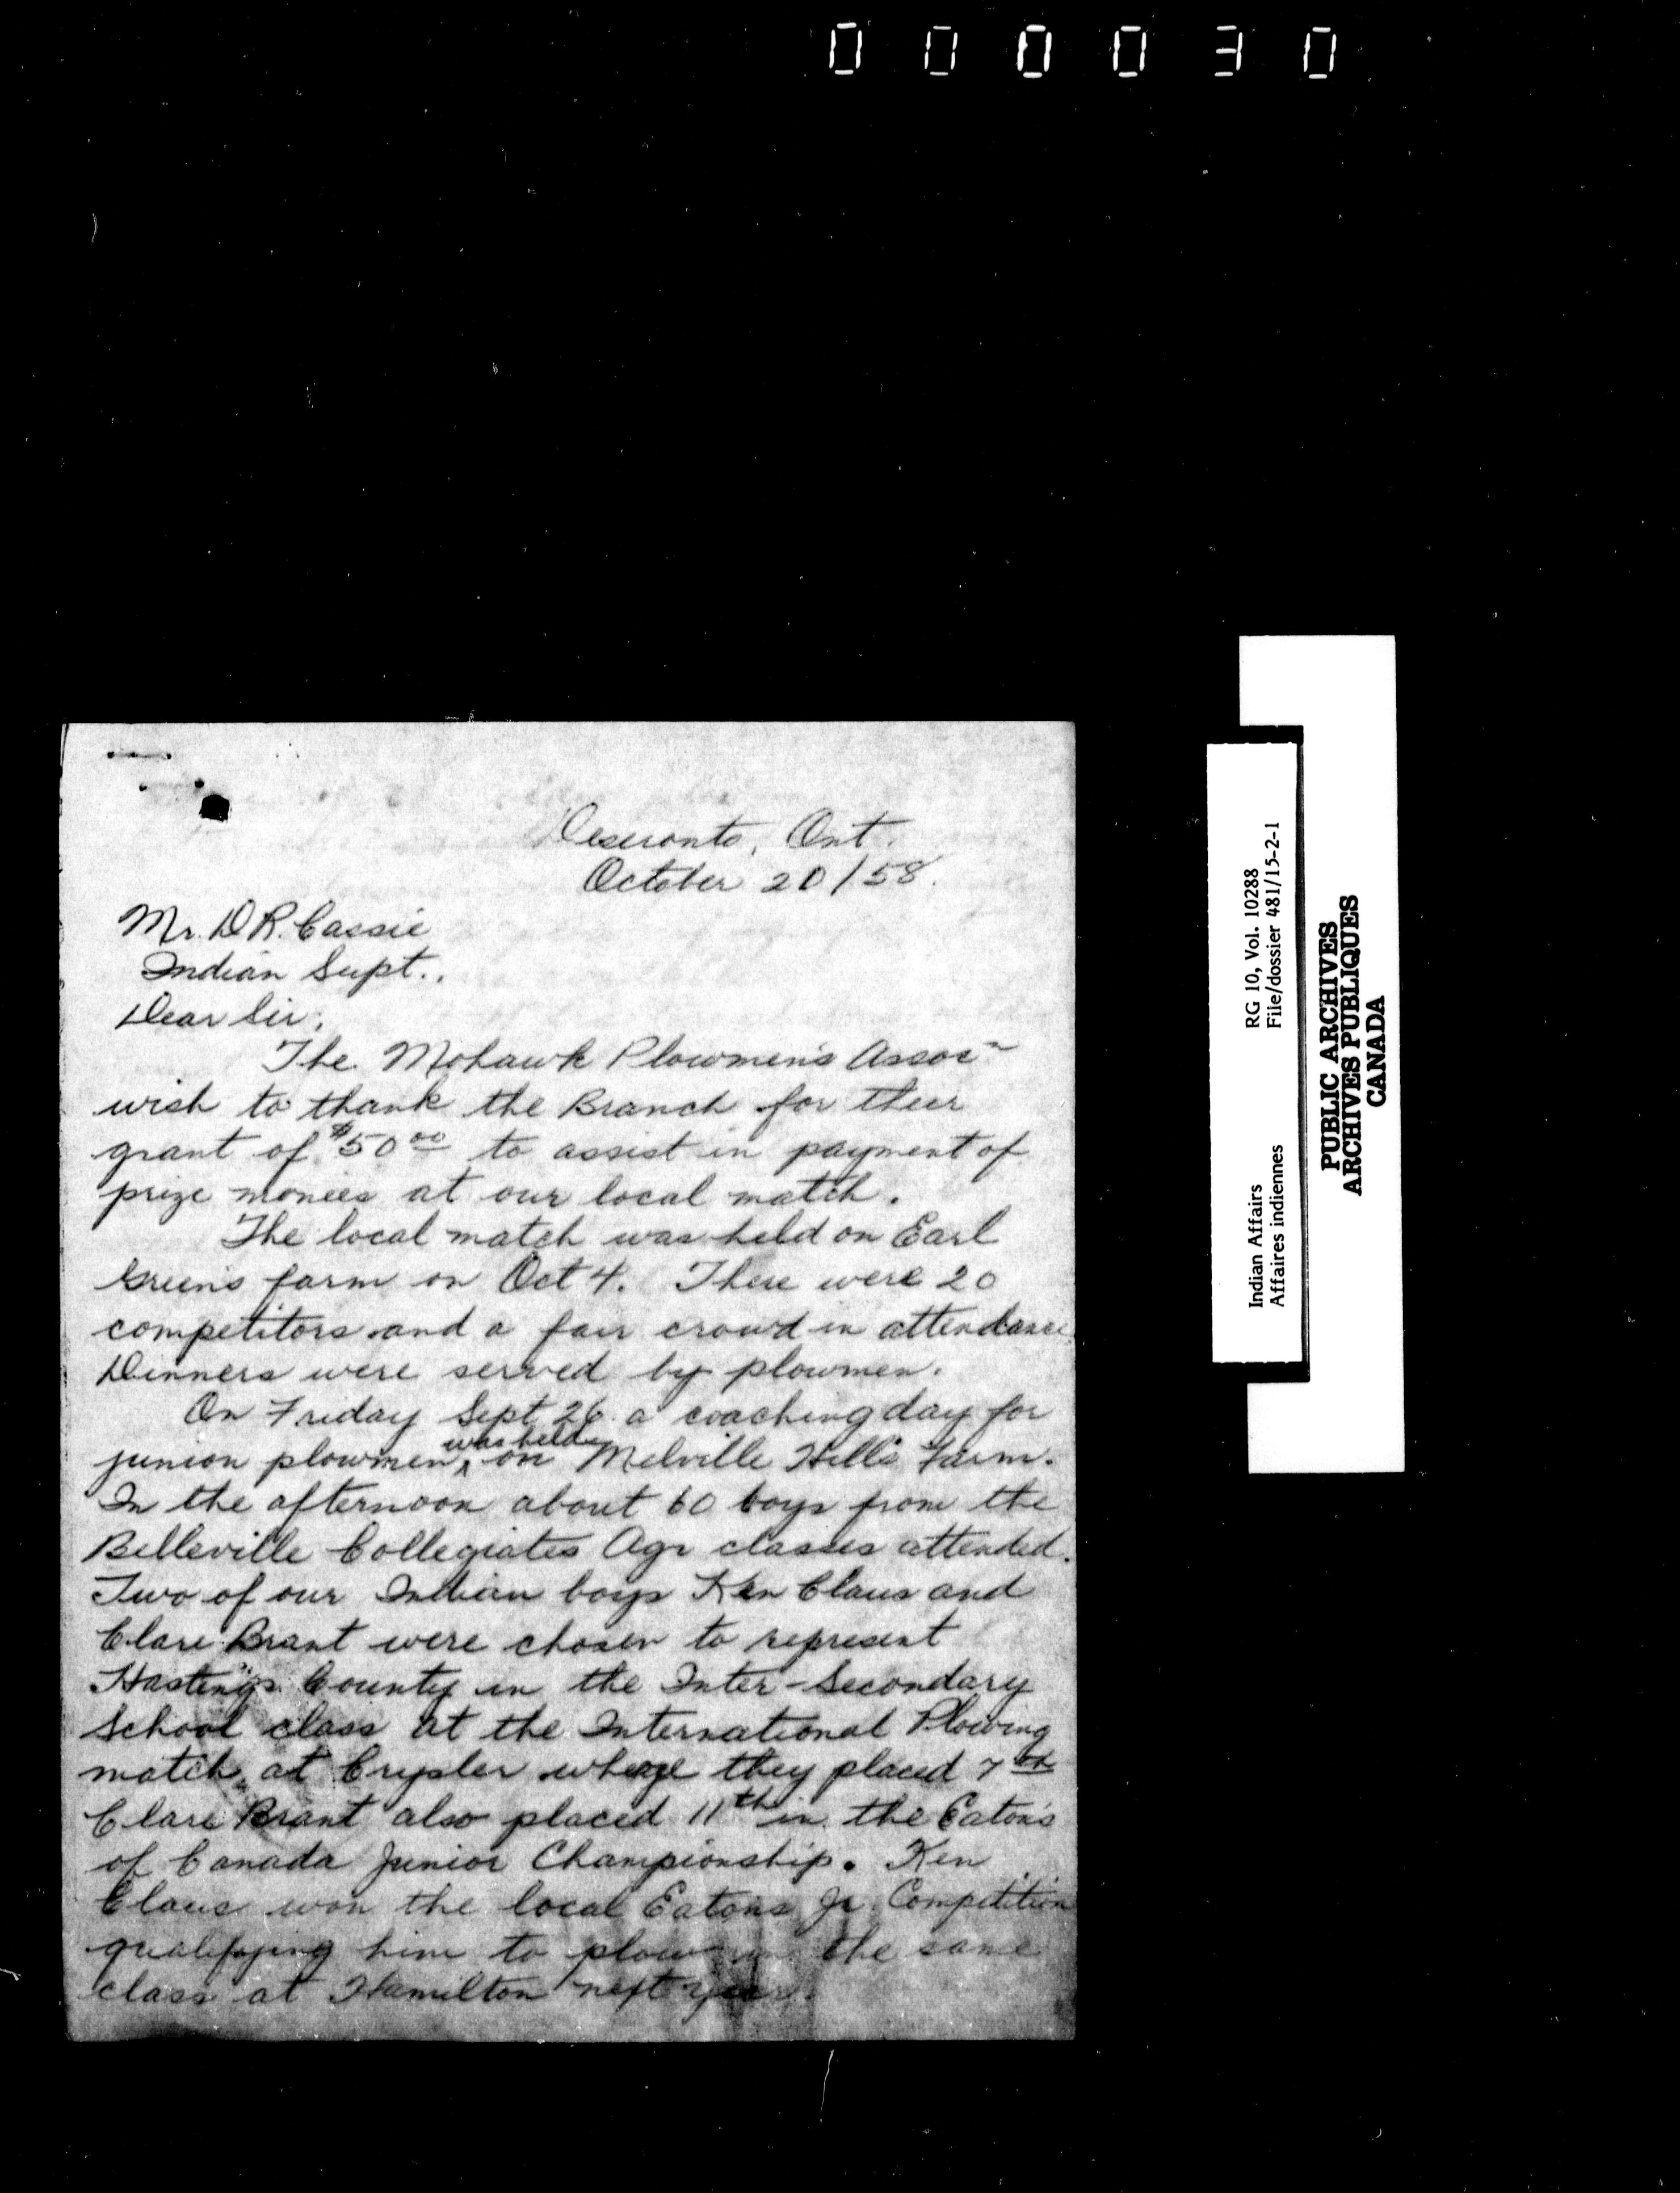 000030
Deseronto, Ont.
October 20/58.
Mr. D R. Cassie
Indian Supt..
Dear Sir;
The Mohawk Plowmen's Assoc'n
wish to thank the Branch for their
grant of $50.00 to assist in payment of
prize monies at our local match.
The local match was held on Earl
Green's farm on Oct 4. There were 20
competitors and a fair crowd in attendance
Dinners were served by plowmen.
On Friday Sept 26 a coaching day for
junior plowmen was held on Melville Hill's Farm.
In the afternoon about 60 boys from the
Belleville Collegiates Agr classes attended.
Two of our Indian boys Ken Claus and
Clare Brant were chosen to represent
Hastings County in the Inter-Secondary
School class at the International Plowing
match at Crysler where they placed 7th
Clare Brant also placed 11th in the Eaton's
of Canada Junior Championship. Ken
Claus won the local Eatons Jr. Competition
qualifying him to plow in the same
class at Hamilton next year.
Indian Affairs RG 10, Vol. 10288
Affaires indiennes File/dossier 481/15-2-1
PUBLIC ARCHIVES
ARCHIVES PUBLIQUES
CANADA